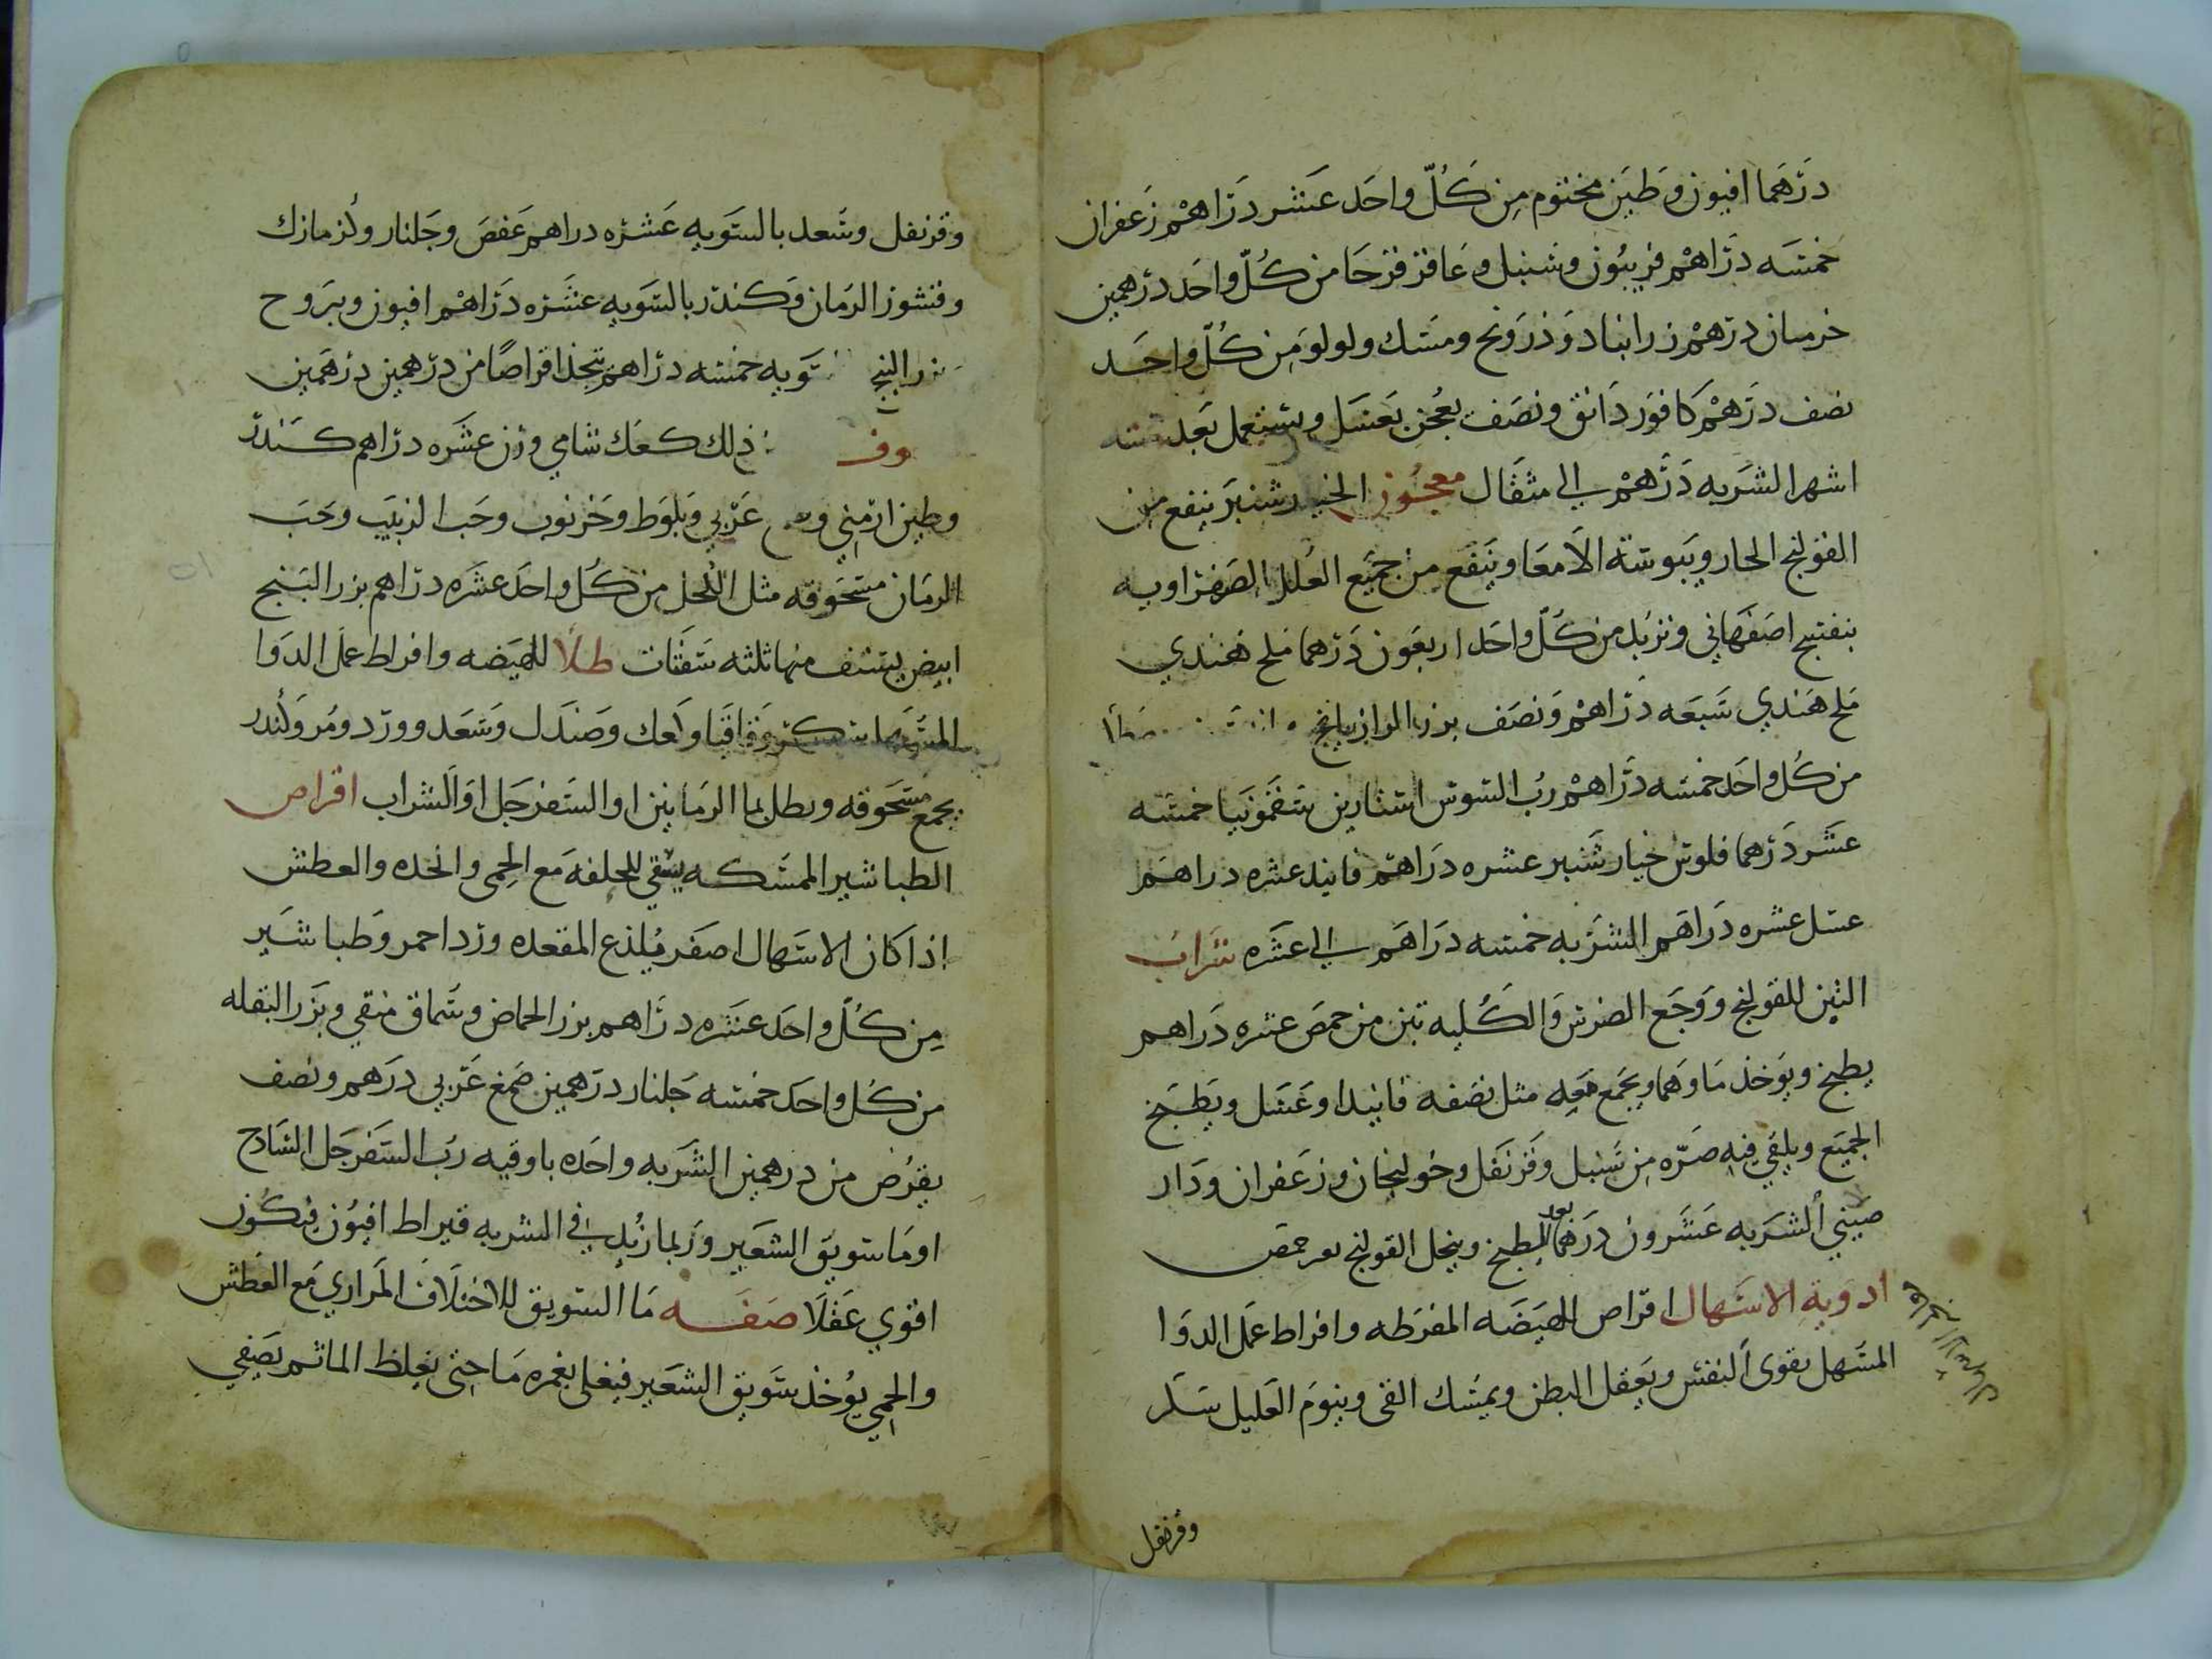 درهما افيون وطين مختوم من كل واحد عشر دراهم زعفران
خمسه دراهم فربيون وسنبل وعاقرقرحا من كل واحد درهمين
خرميان درهم زرانباد وذرونج ومسك ولولو من كل واحد
نصف درهم كافور دانق ونصف يعجن بعسل ويستعمل بعد سته
اشهر الشربه درهم الي مثقال معجون الخيارشنبر ينفع من
القولنج الحار ويبوسة الامعا وينفع من جميع العلل الصفراويه
بنفسج اصفهاني وتربل من كل واحد اربعون درهما ملح هندي
ملح هندي سبعه دراهم ونصف بزر الرازيانج
من كل واحد خمسه دراهم رب السوس استارين سقمونيا خمسه
عشر درهما فلوس خيار شنبر عشره دراهم فانيد عشره دراهم
عسل عشره دراهم الشربه خمسه دراهم الي عشره شراب
التين للقولنج ووجع الضرس والكليه تين من حمص عشره دراهم
يطبخ ويوخذ ماوهما ويجمع معه مثل نصفه فانيدا وعسل ويطبخ
الجميع ويلقي فيه صره من سنبل وقرنفل وخولنجان وزعفران ودار
صيني الشربه عشرون درهما بعد الطبخ وينحل القولنج بعر حمص
ادوية الاسهال اقراص الهيضه المفرطه وافراط عمل الدوا
المسهل يقوي النفس ويعقل البطن ويمسك القي وينوم العليل سكر
وقرنفل
وقرنفل وسعد بالسويه عشره دراهم عفص وجلنار وكزمازك
وقشور الرمان وكندر بالسويه عشره دراهم افيون ويبروح
بزر البنج تويه خمسه دراهم يتخذ اقراصا من درهمين درهمين
وف ذلك كعك شامي وزن عشره دراهم كندر
وطين ارمني عربي وبلوط وخرنوب وحب الزبيب وحب
الرمان مسحوقه مثل الكحل من كل واحد عشره دراهم بزر البنج
ابيض يستف منها ثلثه سفات طلا للهيضه وافراط عمل الدوا
وقاقيا ولعك وصندل وسعد وورد ومر وكندر
يجمع مسحوقه ويطلي بما الرمانين او السفرجل او الشراب اقراص
الطباشير الممسكه يسقي للخلفه مع الحمي والحده والعطش
اذا كان الاسهال اصفر يلذع المقعده ورد احمر وطباشير
من كل واحد عشره دراهم بزر الحماض وسماق منقي وبزر البقله
من كل واحد خمسه جلنار درهمين صمغ عربي درهم ونصف
يقرض من درهمين الشربه واحده باوقيه رب السفرجل الساذج
او ما سويق الشعير وربما زيد في الشربه قيراط افيون فيكون
اقوي عقلا صفه ما السويق للاختلاف المراري مع العطش
والحمي يوخذ سويق الشعير فيغلي بغمره ما حتي يغلظ الما ثم يصفي